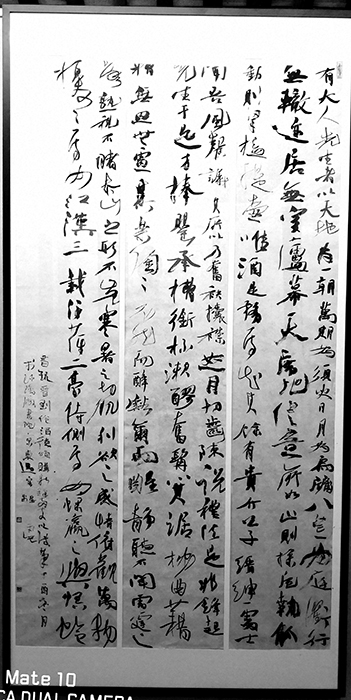 有大人先生者以天地為一朝萬期為須臾日月為扃牖八荒為庭衢行
無轍迹居無室廬幕天席地縱意所如止則操卮執觚
動則挈榼提壺唯酒是務焉知其餘有貴介公子搢紳處士
聞吾風聲議其所以乃奮袂攘襟怒目切齒陳說禮法是非鋒起
先生于是方捧罌承槽銜杯漱醪奮髯箕踞枕麯藉糟
無思無慮其樂陶陶兀然而醉豁爾而醒靜聽不聞雷霆之
聲熟視不睹泰山之形不覺寒暑之切肌利欲之感情俯觀萬物
擾擾焉如江漢之載浮萍二豪侍側焉如蜾蠃之與螟蛉
劉伶酒德頌
Mate 10
CA DUAL CAMERA